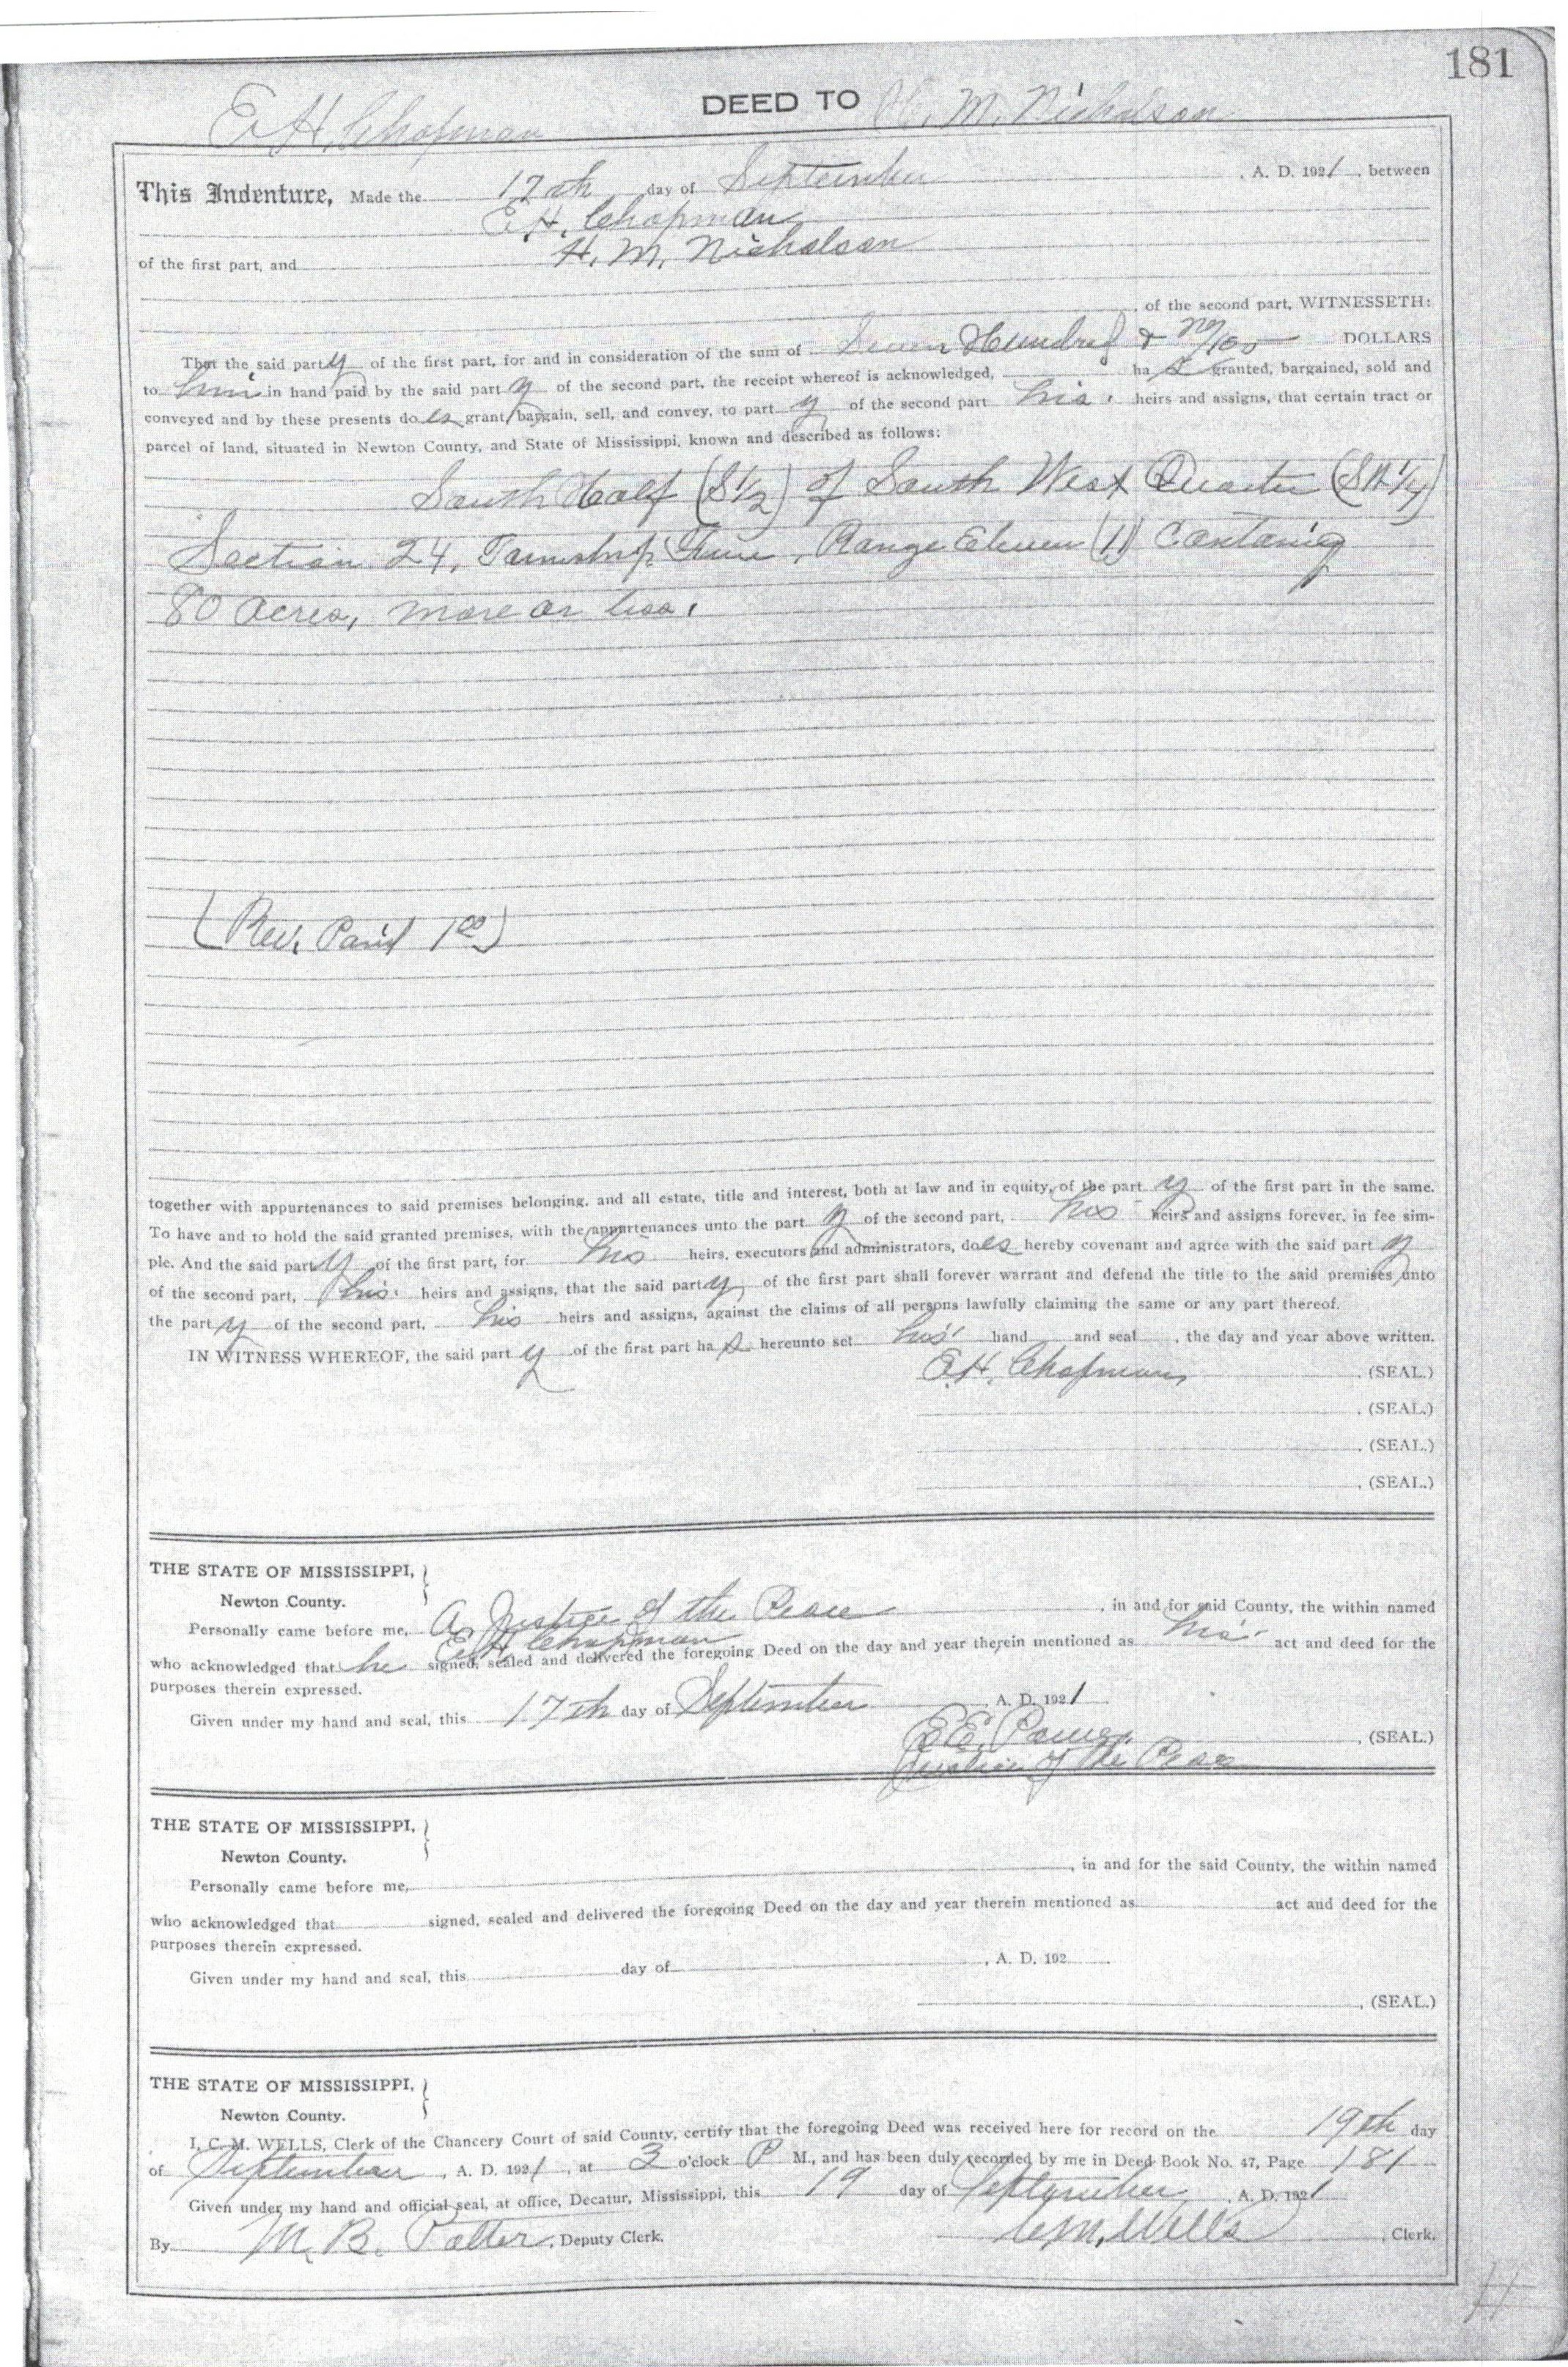 181
E. H. Chapman DEED TO H. M. Nicholson
This Indenture, Made the 17th day of September, A. D. 1921, between
E. H. Chapman
of the first part, and H. M. Nicholson
, of the second part, WITNESSETH:
That the said party of the first part, for and in consideration of the sum of Seven Hundred & no/100 DOLLARS
to him in hand paid by the said party of the second part, the receipt whereof is acknowledged, has granted, bargained, sold and
conveyed and by these presents does grant, bargain, sell, and convey, to party of the second part his heirs and assigns, that certain tract or
parcel of land, situated in Newton County, and State of Mississippi, known and described as follows:
South Half (S½) of South West Quarter (SW¼)
Section 24, Township, Range Eleven (11) Containig
80 acres, more or less.
(Rev. Paid 1 00)
together with appurtenances to said premises belonging, and all estate, title and interest, both at law and in equity, of the party of the first part in the same.
To have and to hold the said granted premises, with the appurtenances unto the party of the second part, his heirs and assigns forever, in fee sim-
ple. And the said party of the first part, for his heirs, executors and administrators, does hereby covenant and agree with the said party
of the second part, his heirs and assigns, that the said party of the first part shall forever warrant and defend the title to the said premises unto
the party of the second part, his heirs and assigns, against the claims of all persons lawfully claiming the same or any part thereof.
IN WITNESS WHEREOF, the said party of the first part has hereunto set his hand and seal, the day and year above written.
E. H. Chapman, (SEAL.)
, (SEAL.)
, (SEAL.)
, (SEAL.)
THE STATE OF MISSISSIPPI,
Newton County.
Personally came before me, A Justice of the Peace, in and for said County, the within named
E. H. Chapman
who acknowledged that he signed, sealed and delivered the foregoing Deed on the day and year therein mentioned as his act and deed for the
purposes therein expressed.
Given under my hand and seal, this 17th day of September, A. D. 1921
E. E., (SEAL.)
Justice of the Peace
THE STATE OF MISSISSIPPI,
Newton County.
Personally came before me, , in and for the said County, the within named
who acknowledged that signed, sealed and delivered the foregoing Deed on the day and year therein mentioned as act and deed for the
purposes therein expressed.
Given under my hand and seal, this day of , A. D. 192
, (SEAL.)
THE STATE OF MISSISSIPPI,
Newton County.
I, C. M. WELLS, Clerk of the Chancery Court of said County, certify that the foregoing Deed was received here for record on the 19th day
of September, A. D. 1921, at 3 o'clock P M., and has been duly recorded by me in Deed Book No. 47, Page 181
Given under my hand and official seal, at office, Decatur, Mississippi, this 19 day of September, A. D. 1921
By M. B. Potter, Deputy Clerk. C. M. Wells, Clerk.